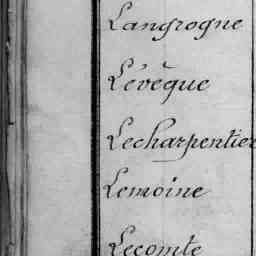 Langrogne
Lévêque
Lecharpentier
Lemoine
Lecomte